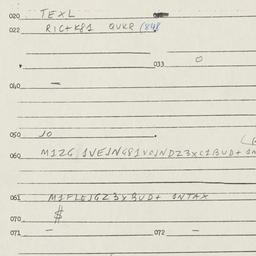 020 TEXL
022 RICTK81 QUKR (848
033 O
040 —
050 JO
060 M1ZG 1VEJNG81VOJNDZ3XC1BUD+ 1N
061 M1FLEJGZ3XBUD+ 1NTAX
070 $
071 — 072 —